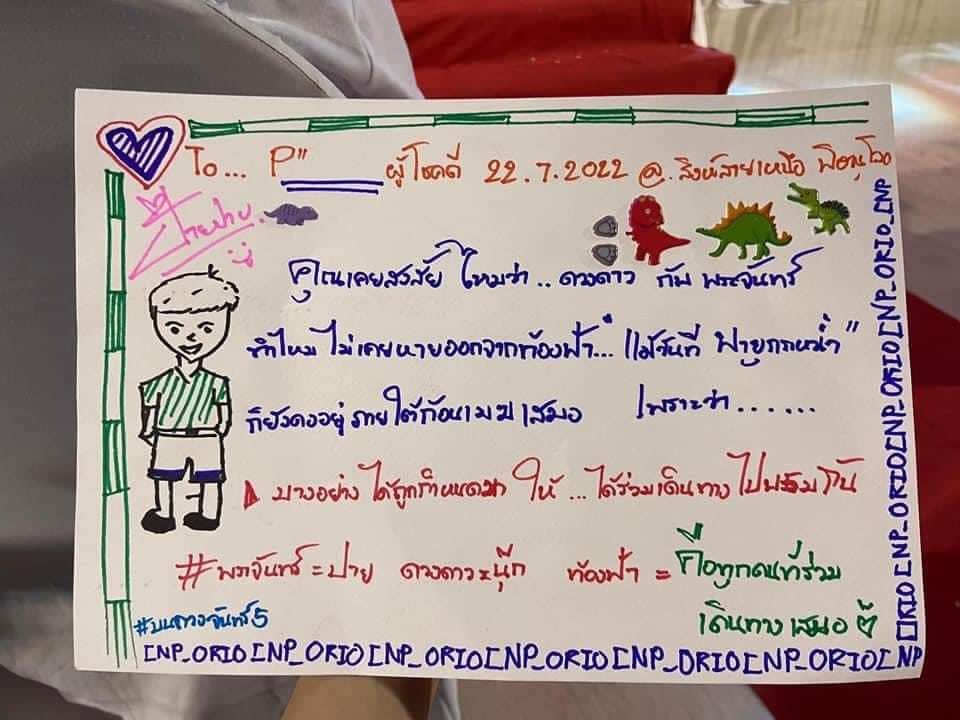 To... P" ผู้โชคดี 22.7.2022 @.สิงห์สายเหนือ พิษณุโลก
ป้ายปาย.
คุณเคยสงสัย ไหมว่า.. ดวงดาว กับ พระจันทร์
ทำไหม ไม่เคยหายออกจากท้องฟ้า... "แม้วันที่ พายุกระหน่ำ"
ก็ยังคงอยู่ภายใต้ก้อนเมฆเสมอ เพราะว่า......
บางอย่าง ได้ถูกกำหนดมา ให้ ...ได้ร่วมเดินทางไปพร้อมกัน
#พระจันทร์=ปาย ดวงดาว=นุ๊ก ท้องฟ้า = คือทุกคนที่ร่วม
เดินทางเสมอ
#บนดวงจันทร์5
[NP_ORIO[NP_ORIO[NP_ORIO[NP_ORIO[NP_ORIO[NP_ORIO[NP
ORIO[NP_ORIO[NP_ORIO[NP_ORIO[NP_ORIO[NP